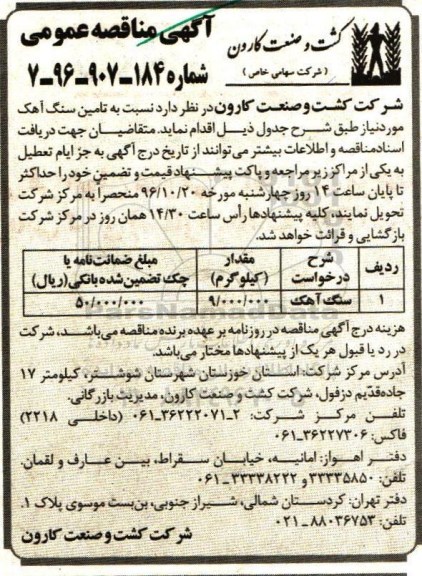 کشت و صنعت کارون
( شرکت سهامی خاص )
آگهی مناقصه عمومی
شماره ۱۸۴-۹۰۷-۹۶-۷
شرکت کشت و صنعت کارون در نظر دارد نسبت به تامین سنگ آهک
موردنیاز طبق شرح جدول ذیل اقدام نماید. متقاضیان جهت دریافت
اسناد مناقصه و اطلاعات بیشتر می‌توانند از تاریخ درج آگهی به جز ایام تعطیل
به یکی از مراکز زیر مراجعه و پاکت پیشنهاد قیمت و تضمین خود را حداکثر
تا پایان ساعت ۱۴ روز چهارشنبه مورخه ۹۶/۱۰/۲۰ منحصراً به مرکز شرکت
تحویل نمایند، کلیه پیشنهادها رأس ساعت ۱۴/۳۰ همان روز در مرکز شرکت
بازگشایی و قرائت خواهد شد.
ردیف	شرح درخواست	مقدار (کیلوگرم)	مبلغ ضمانت‌نامه یا چک تضمین شده بانکی (ریال)
۱	سنگ آهک	۹/۰۰۰/۰۰۰	۵۰/۰۰۰/۰۰۰
ParsNamadData
هزینه درج آگهی مناقصه در روزنامه بر عهده برنده مناقصه می‌باشد، شرکت
در رد یا قبول هر یک از پیشنهادها مختار می‌باشد.
آدرس مرکز شرکت: استان خوزستان شهرستان شوشتر، کیلومتر ۱۷
جاده قدیم دزفول، شرکت کشت و صنعت کارون، مدیریت بازرگانی.
تلفن مرکز شرکت: ۲-۳۶۲۲۲۰۷۱-۰۶۱ (داخلی ۲۲۱۸)
فاکس: ۳۶۲۲۷۳۰۶-۰۶۱
دفتر اهواز: امانیه، خیابان سقراط، بین عارف و لقمان.
تلفن: ۳۳۳۳۵۸۵۰ و ۳۳۳۳۸۲۲۲-۰۶۱
دفتر تهران: کردستان شمالی، شیراز جنوبی، بن‌بست موسوی پلاک ۱.
تلفن: ۸۸۰۳۶۷۵۳-۰۲۱
شرکت کشت و صنعت کارون